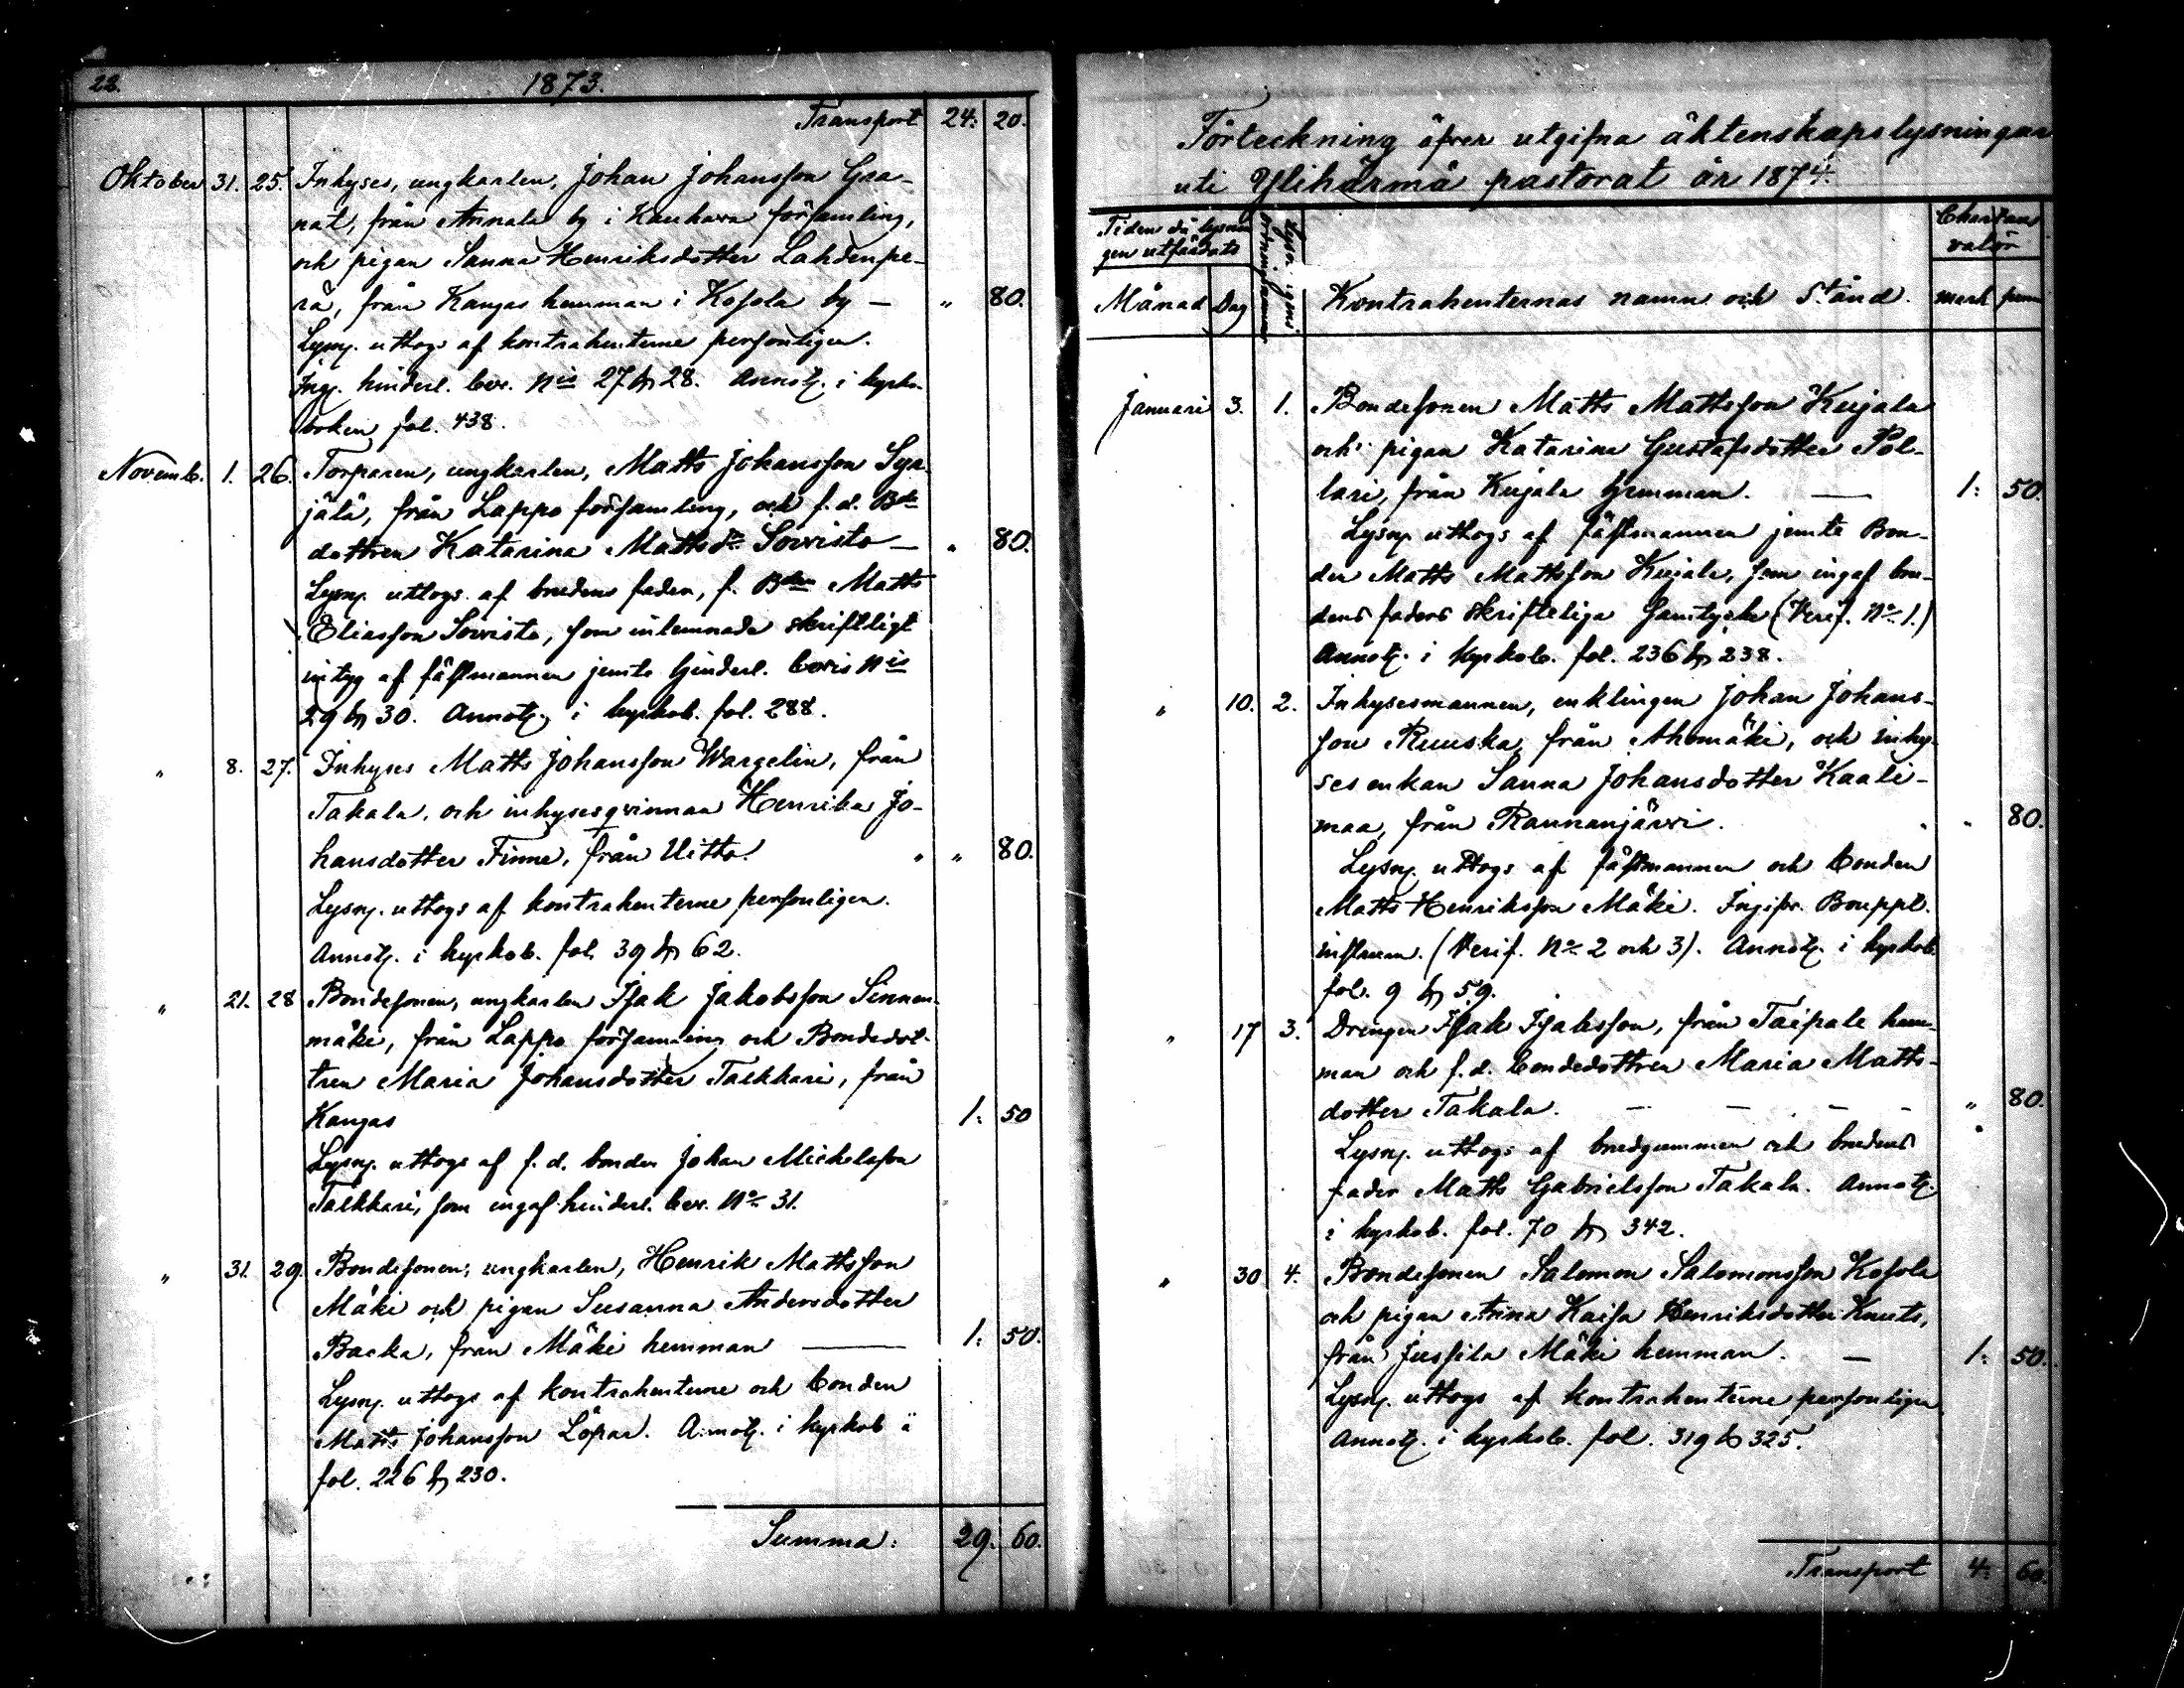 22.
1873.
Transport 24: 20.
Oktober 31. 25. Inhyses, ungkarlen, Johan Johansson Gra-
nat, från Annala by i Kauhava församling,
och pigan Sanna Henriksdotter Lahdenpe-
rä, från Kangas hemman i Kosola by — " 80.
Lysng. uttogs af kontrahenterne personligen.
Ingp. hinderl. bev. Nis 27 & 28. Annotg. i kyrko-
boken fol. 438.
Novemb. 1. 26. Torparen, ungkarlen, Matts Johansson Syr-
jälä, från Lappo församling, och f.d. Bde
dottren Katarina Mattsdr Sorvisto — " 80.
Lysng. uttogs af brudens fader, f. Bden Matts
Eliasson Sorvisto, som inlemnade skriftligt
intyg af fästmannen jemte hinderl. bevis Nis
29 & 30. Annotg. i kyrkob. fol. 288.
" 8. 27. Inhyses Matts Johansson Wargelin, från
Takala, och inhysesqvinnan Henrika Jo-
hansdotter Finne, från Uitto. " " 80.
Lysng. uttogs af kontrahenterne personligen.
Annotg. i kyrkob. fol. 39 & 62.
" 21. 28 Bondesonen, ungkarlen Isak Jakobsson Sinna-
mäki, från Lappo församling och Bondedot-
tren Maria Johansdotter Talkkari, från
Kangas 1: 50
Lysng. uttogs af f.d. bonden Johan Michelsson
Talkkari, som ingaf hinderl. bev. No 31.
" 31. 29. Bondesonen, ungkarlen, Henrik Mattsson
Mäki och pigan Susanna Andersdotter
Backa, från Mäki hemman — 1: 50.
Lysng. uttogs af kontrahenterne och bonden
Matts Johansson Löpar. Annotg. i kyrkob å
fol. 226 & 230.
Summa: 29. 60.
Förteckning öfver utgifna äktenskapslysningar
uti Ylihärmä pastorat år 1874.
Tiden då lysnin-
gen utfärdats
Månad Dag
Kontrahenternas namn och Stånd.
valör
mark penn
Januari 3. 1. Bondesonen Matts Mattsson Kujala
och pigan Katarina Gustafsdotter Pol-
lari, från Kujala hemman. — 1: 50
Lysng. uttogs af fästmannen jemte Bon-
den Matts Mattsson Kujala, som ingaf bru-
dens faders skriftliga samtycke (Verif. No 1.)
Annotg. i kyrkob. fol. 236 & 238.
" 10. 2. Inhysesmannen, enklingen Johan Johans-
son Ruuska, från Ahomäki, och inhy-
sesenkan Sanna Johansdotter Kaali-
maa, från Rannanjärvi. " " 80.
Lysng. uttogs af fästmannen och bonden
Matts Henriksson Mäki. Bouppt.
instrum. (Verif. No 2 och 3). Annotg. i kyrkob.
fol. 9 & 59.
" 17 3. Drengen Isak Isaksson, från Taipale hem-
man och f.d. bondedottren Maria Matts-
dotter Takala. — — — — " 80.
Lysng. uttogs af brudgummen och brudens
fader Matts Gabrielsson Takala. Annotg.
i kyrkob. fol. 70 & 342.
" 30 4. Bondesonen Salomon Salomonsson Kosola
och pigan Anna Kaisa Henriksdotter Knuts,
från Jussila Mäki hemman. — 1: 50.
Lysng. uttogs af kontrahenterne personligen
Annotg. i kyrkob. fol. 319 & 325.
Transport 4: 60.